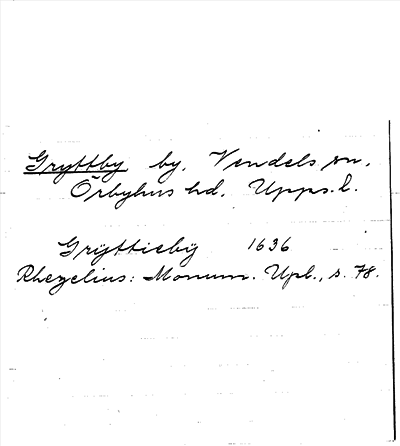 Gryttby by, Vendels sn,
Örbyhus hd, Upps. l.
Gryttieby 1636
Rhezelius: Monum. Upl., s. 78.